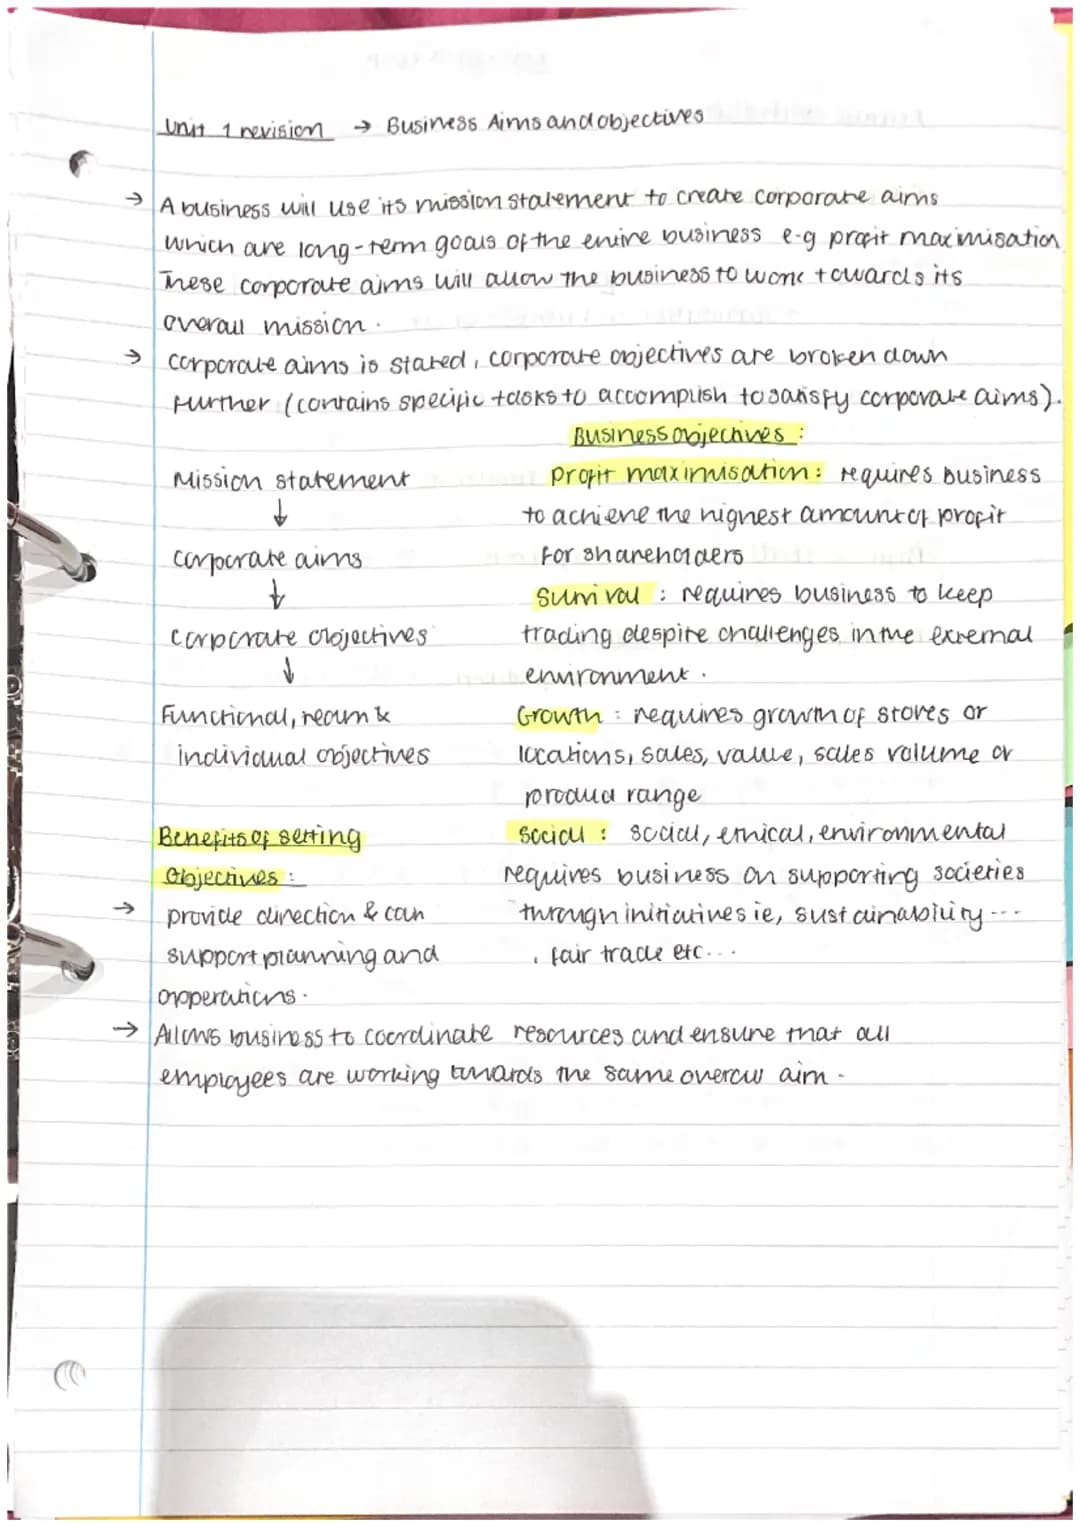 Unit 1 revision → Business Aims and objectives
→ A business will use its mission statement to create corporate aims
which are long-term goals of the entire business e-g profit maximisation
These corporate aims will allow the business to work towards its
overall mission.
→ corporate aims is stated, corporate objectives are broken down
further (contains specific tasks to accomplish to satisfy corporate aims).
Mission statement
↓
corporate aims
↓
corporate objectives
↓
Functional, team &
individual objectives
Benefits of setting
Objectives:
→ provide direction & can
support planning and
opperations.
Business objectives:
profit maximisation: requires business
to achieve the highest amount of profit
for shareholders
Survival: requires business to keep
trading despite challenges in the external
environment.
Growth: requires growth of stores or
locations, sales, value, sales volume or
product range
Social: social, ethical, environmental
requires business on supporting societies
through initiatives ie, sustainability ---
, fair trade etc...
→ Allows business to coordinate resources and ensure that all
employees are working towards the same overall aim.